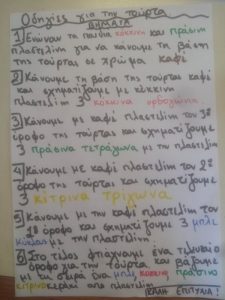 Οδηγίες για την τούρτα
ΒΗΜΑΤΑ
1) Ενώνουν τα παιδιά κόκκινη και πράσινη
πλαστελίνη για να κάνουμε τη βάση
της τούρτας σε χρώμα καφέ
2) Κάνουμε τη βάση της τούρτας καφέ
και σχηματίζουμε με κόκκινη
πλαστελίνη 3 κόκκινα ορθογώνια.
3) Κάνουμε με καφέ πλαστελίνη τον 3º
όροφο της τούρτας και σχηματίζουμε
3 πράσινα τετράγωνα με την πλαστελίνη
4) Κάνουμε με καφέ πλαστελίνη τον 2º
όροφο της τούρτας και σχηματίζουμε
3 κίτρινα τρίγωνα
5) Κάνουμε με την καφέ πλαστελίνη τον
1º όροφο και σχηματίζουμε 3 μπλε
κύκλους με την πλαστελίνη.
6) Στο τέλος φτιάχνουμε ένα τελευταίο
όροφο για την τούρτα και βάζουμε
με τη σειρά ένα μπλε, κόκκινο, πράσινο
κίτρινο κεράκι από πλαστελίνη.
ΚΑΛΗ ΕΠΙΤΥΧΙΑ!